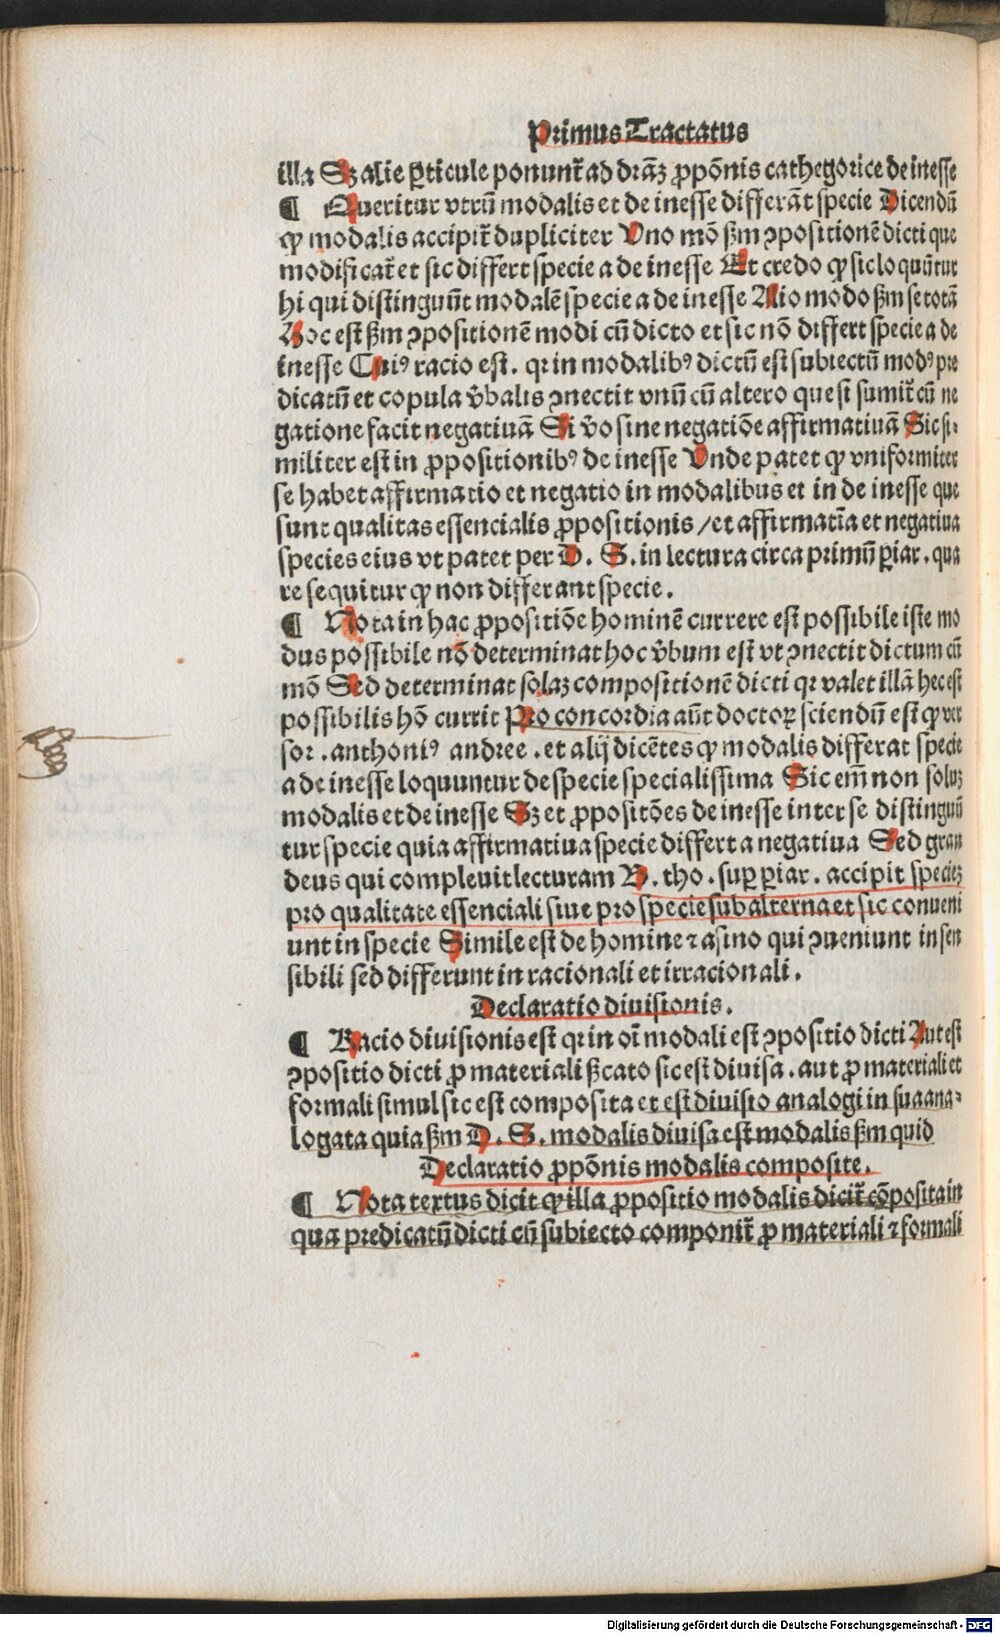 Primus Tractatus
illa Sꝫ alie ꝑticule ponunt᷑ ad dr̄aꝫ ꝓpōnis cathegorice de inesse
¶ Queritur vtrū modalis et de inesse differāt specie Dicendū
ꝙ modalis accipit᷑ dupliciter Uno mō ẜm ꝯpositionē dicti que
modificat᷑ et sic differt specie a de inesse Et credo ꝙ sic loquūtur
hi qui distingunt modalē specie a de inesse Alio modo ẜm se totā
Hoc est ẜm ꝯpositionē modi cū dicto et sic nō differt specie a de
inesse Cuiꝰ racio est . qr in modalibꝰ dictū est subiectū modꝰ pre
dicatū et copula v̄balis ꝯnectit vnū cū altero que si sumit᷑ cū ne
gatione facit negatiuā Si v̄o sine negatiōe affirmatiuā Sic si⸗
militer est in ꝓpositionibꝰ de inesse Unde patet ꝙ vniformiter
se habet affirmatio et negatio in modalibus et in de inesse que
sunt qualitas essencialis ꝓpositionis /et affirmatīa et negatiua
species eius vt patet per D . S . in lectura circa primū ꝑiar . qua
re sequitur ꝙ non differant specie .
¶ Nota in hac ꝓpositiōe hominē currere est possibile iste mo
dus possibile nō determinat hoc v̄bum est vt ꝯnectit dictum cū
mō Sed determinat solaꝫ compositionē dicti qr valet illā hec est
possibilis hō currit Pro concordia aūt doctoꝝ sciendū est ꝙ ver
sor . anthoniꝰ andree . et alij dicētes ꝙ modalis differat specie
a de inesse loquuntur de specie specialissima Sic em̄ non soluꝫ
modalis et de inesse Sꝫ et ꝓpositōes de inesse inter se distinguū
tur specie quia affirmatiua specie differt a negatiua Sed gran
deus qui compleuit lecturam B . tho . suꝑ ꝑiar . accipit specieꝫ
pro qualitate essenciali siue pro specie subalterna et sic conueni
unt in specie Simile est de homine ⁊ asino qui ꝯueniunt in sen
sibili sed differunt in racionali et irracionali .
Declaratio diuisionis .
¶ Racio diuisionis est qr in oī modali est ꝯpositio dicti Aut est
ꝯpositio dicti ꝓ materiali ẜcato sic est diuisa . aut ꝓ materiali et
formali simul sic est composita et est diuisio analogi in sua ana⸗
logata quia ẜm D . S . modalis diuisa est modalis ẜm quid
Declaratio ꝓpōnis modalis composite .
¶ Nota textus dicit ꝙ illa ꝓpositio modalis dicit᷑ cōposita in
qua predicatū dicti cū subiecto componit᷑ ꝓ materiali ⁊ formali
Digitalisierung gefördert durch die Deutsche Forschungsgemeinschaft - DFG